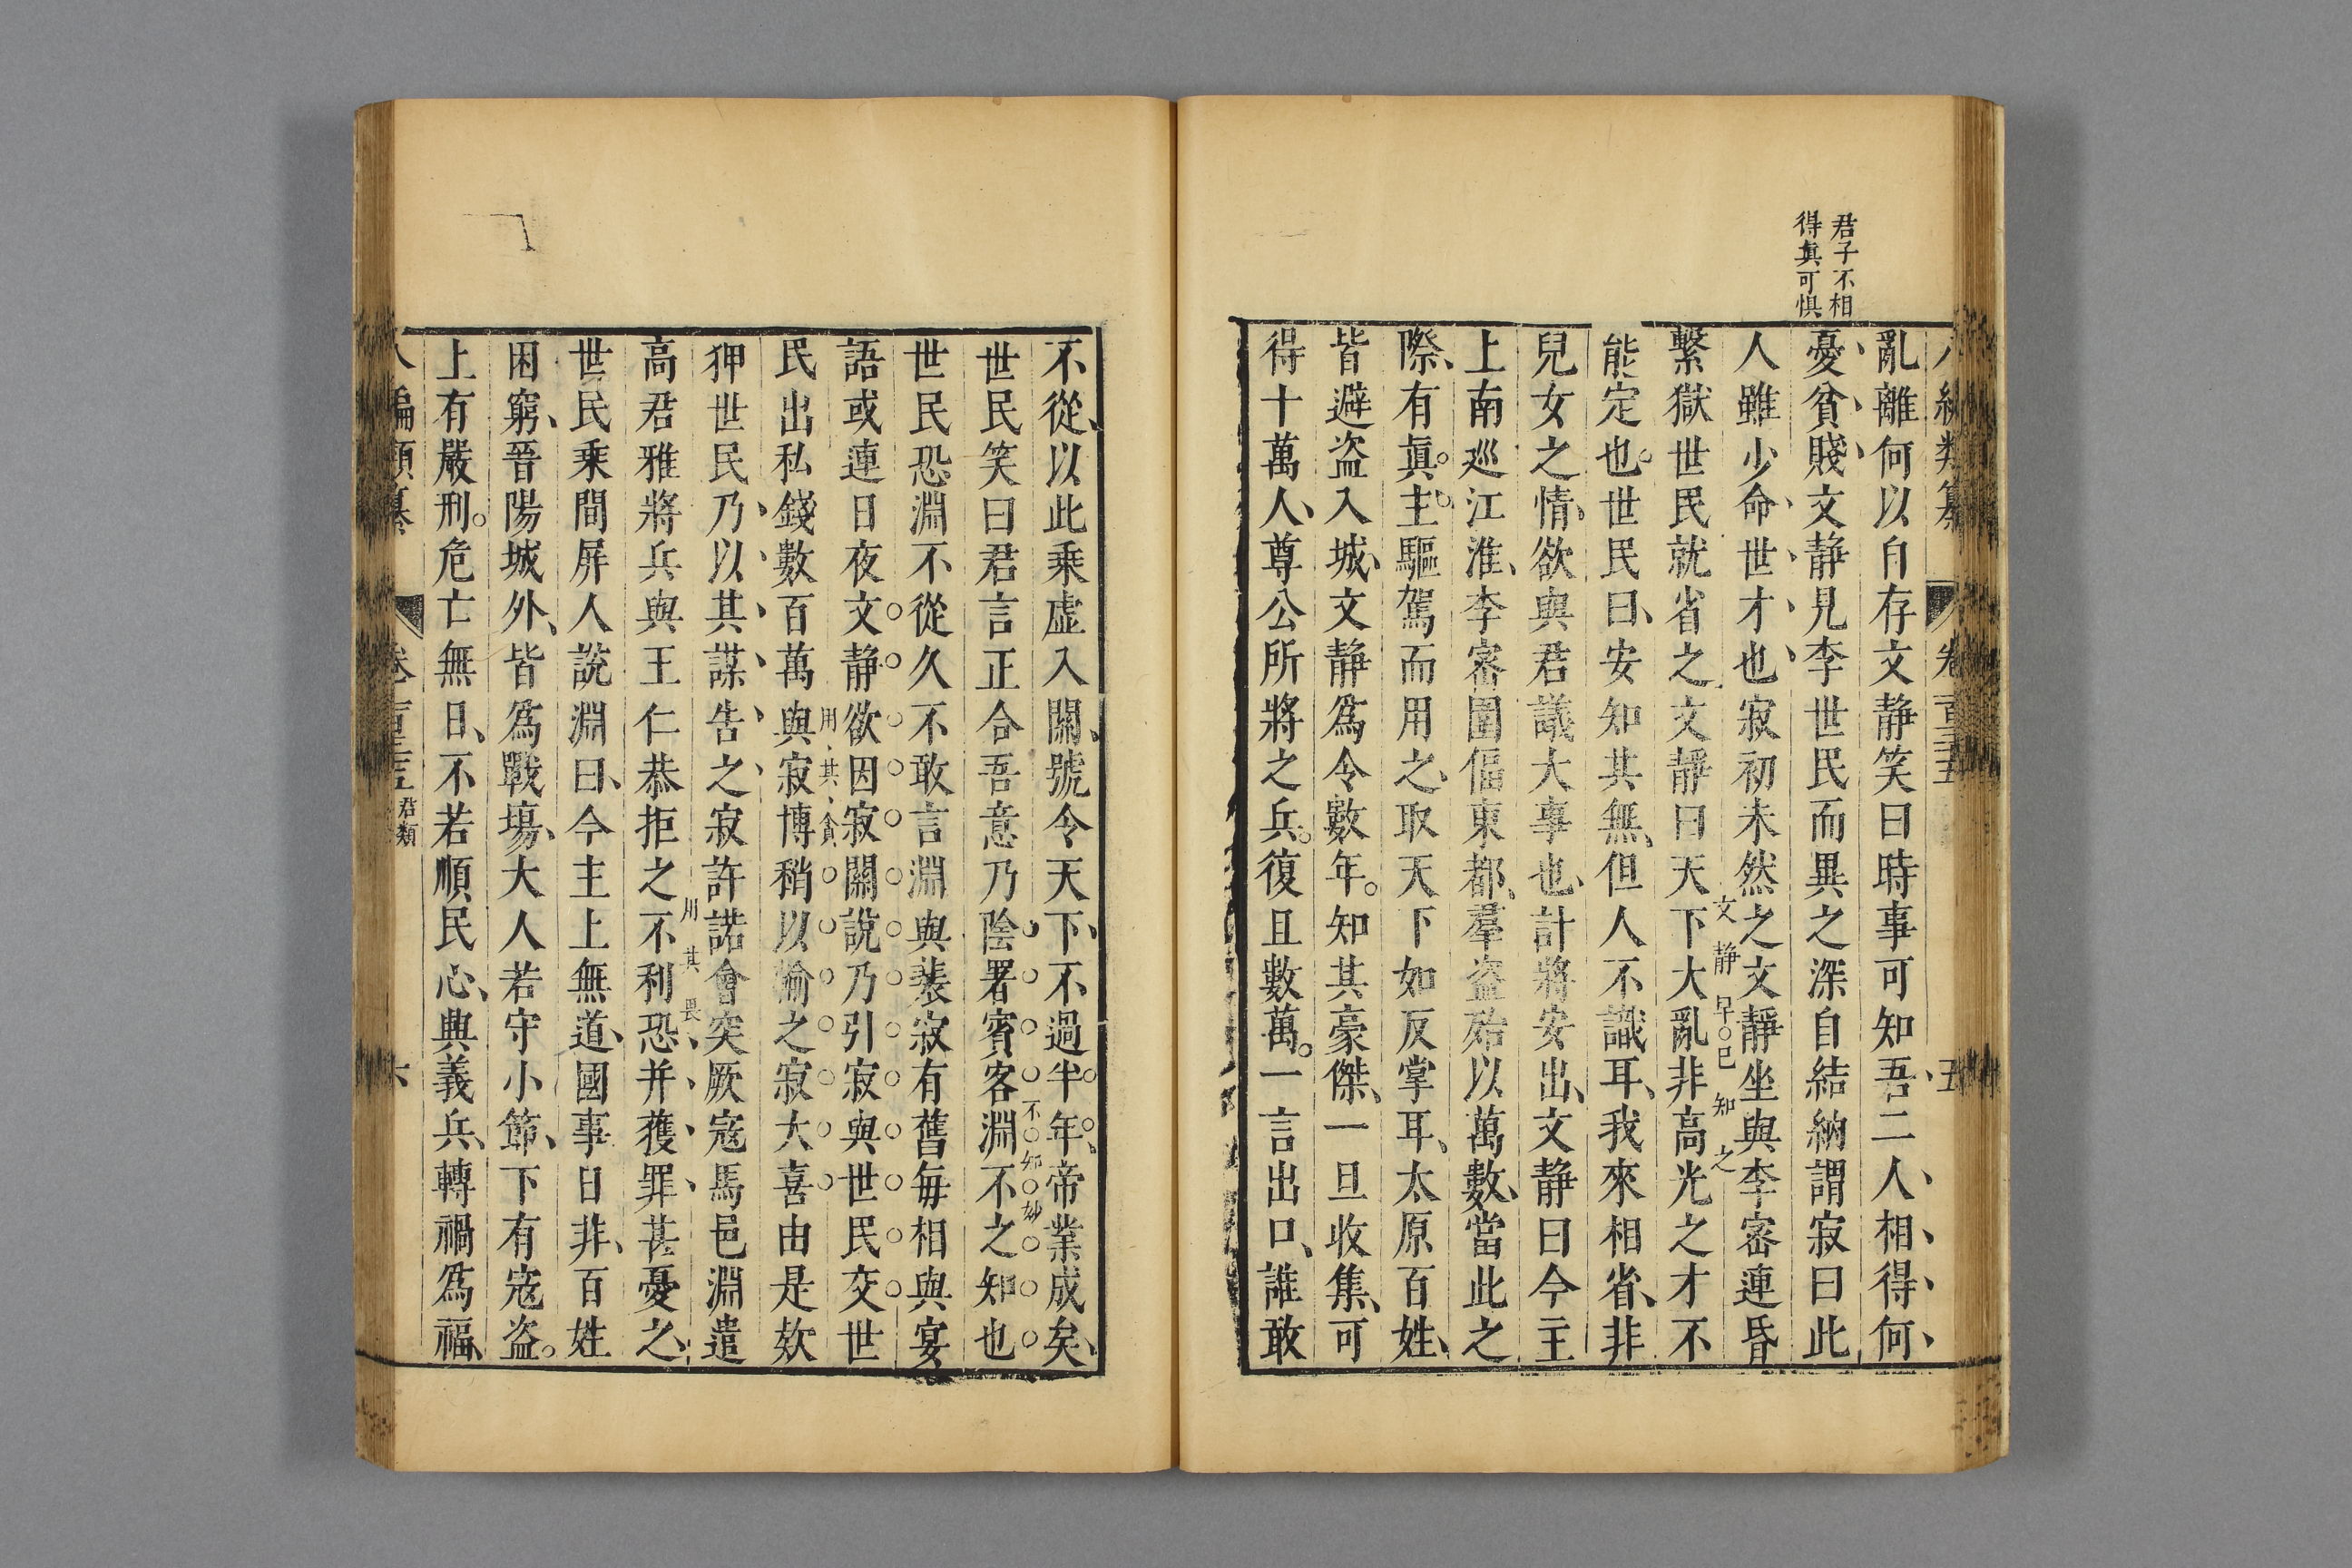 君子不相
得眞可惧
八編類纂 卷一百三十五 五
亂離何以自存文静笑曰時事可知吾二人相得何
憂貧賤文静見李世民而異之深自結納謂寂曰此
人雖少命世才也寂初未然之文靜坐與李密連昏
文靜早已知之
繫獄世民就省之文靜曰天下大亂非高光之才不
能定也世民曰安知其無但人不識耳我來相省非
兒女之情欲與君議大事也計將安出文静曰今主
上南巡江淮李密圍偪東都羣盗殆以萬數當此之
際有眞主驅駕而用之取天下如反掌耳太原百姓
皆避盗入城文静爲令數年知其豪傑一旦收集可
得十萬人尊公所將之兵復且數萬一言出口誰敢
不從以此乗虚入關號令天下不過半年帝業成矣
不知妙
世民笑曰君言正合吾意乃陰署賓客淵不之知也
世民恐淵不從久不敢言淵與裴寂有舊每相與宴
語或連日夜文静欲因寂關說乃引寂與世民交世
用其貪
民出私錢數百萬與寂博稍以輸之寂大喜由是款
狎世民乃以其謀告之寂許諾會突厥寇馬邑淵遣
用其畏
高君雅將兵與王仁恭拒之不利恐并獲罪甚憂之
世民乗間屏人說淵曰今主上無道國事日非百姓
困窮晉陽城外皆爲戰場大人若守小節下有寇盗
上有嚴刑危亡無日不若順民心興義兵轉禍爲福
八編類纂 卷一百三十五 君類 六